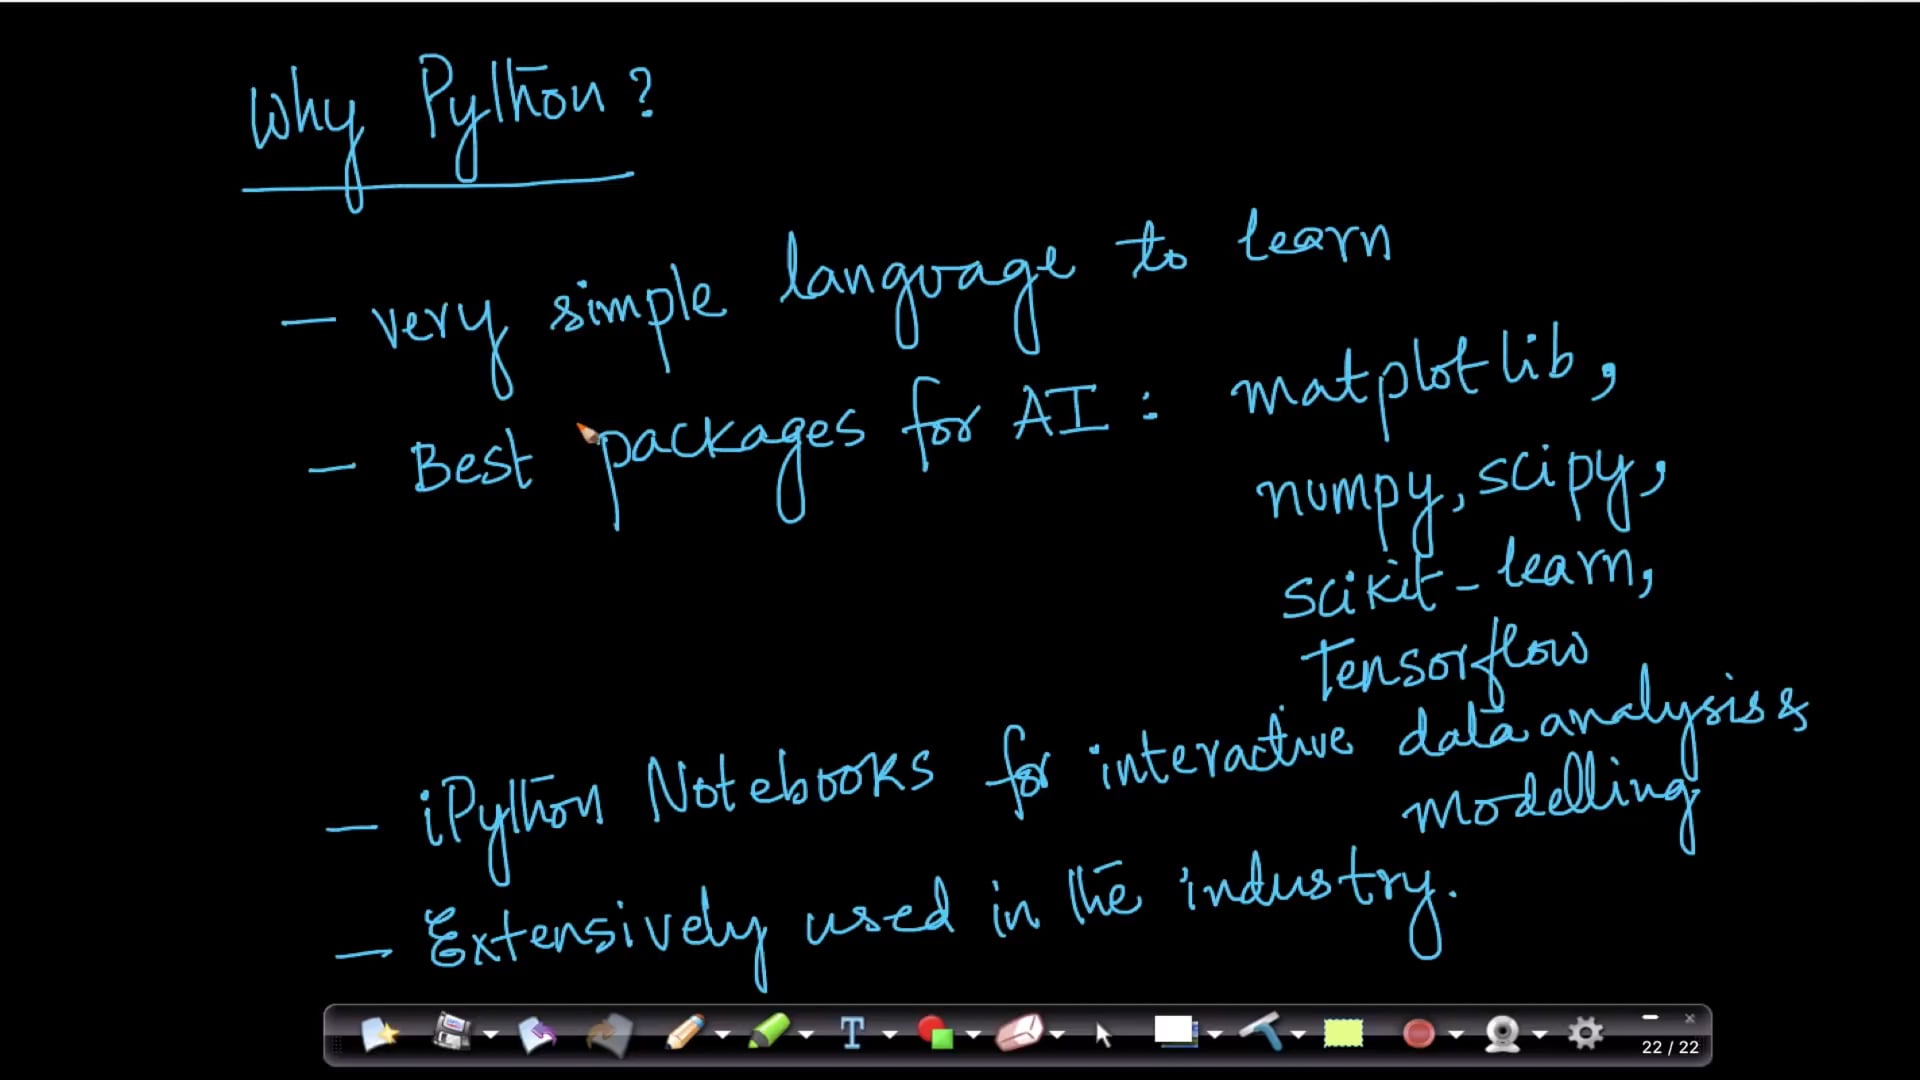 Why Python?
- very simple language to learn
- Best packages for AI : matplotlib,
numpy, scipy,
scikit-learn,
Tensorflow
- iPython Notebooks for interactive data analysis &
modelling
- Extensively used in the industry.
T
22 / 22